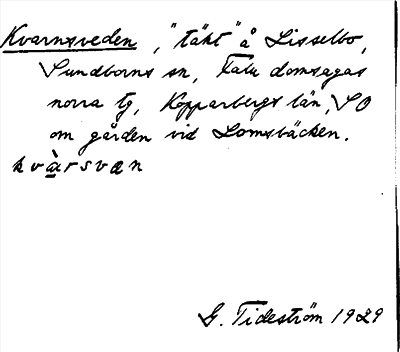 Kvarnsveden, "täkt" å Lisselbo,
Sundborns sn, Falu domsagas
norra tg, Kopparbergs län, SO
om gården vid Lomsbäcken.
kvàrsvæn
G. Tideström 1929